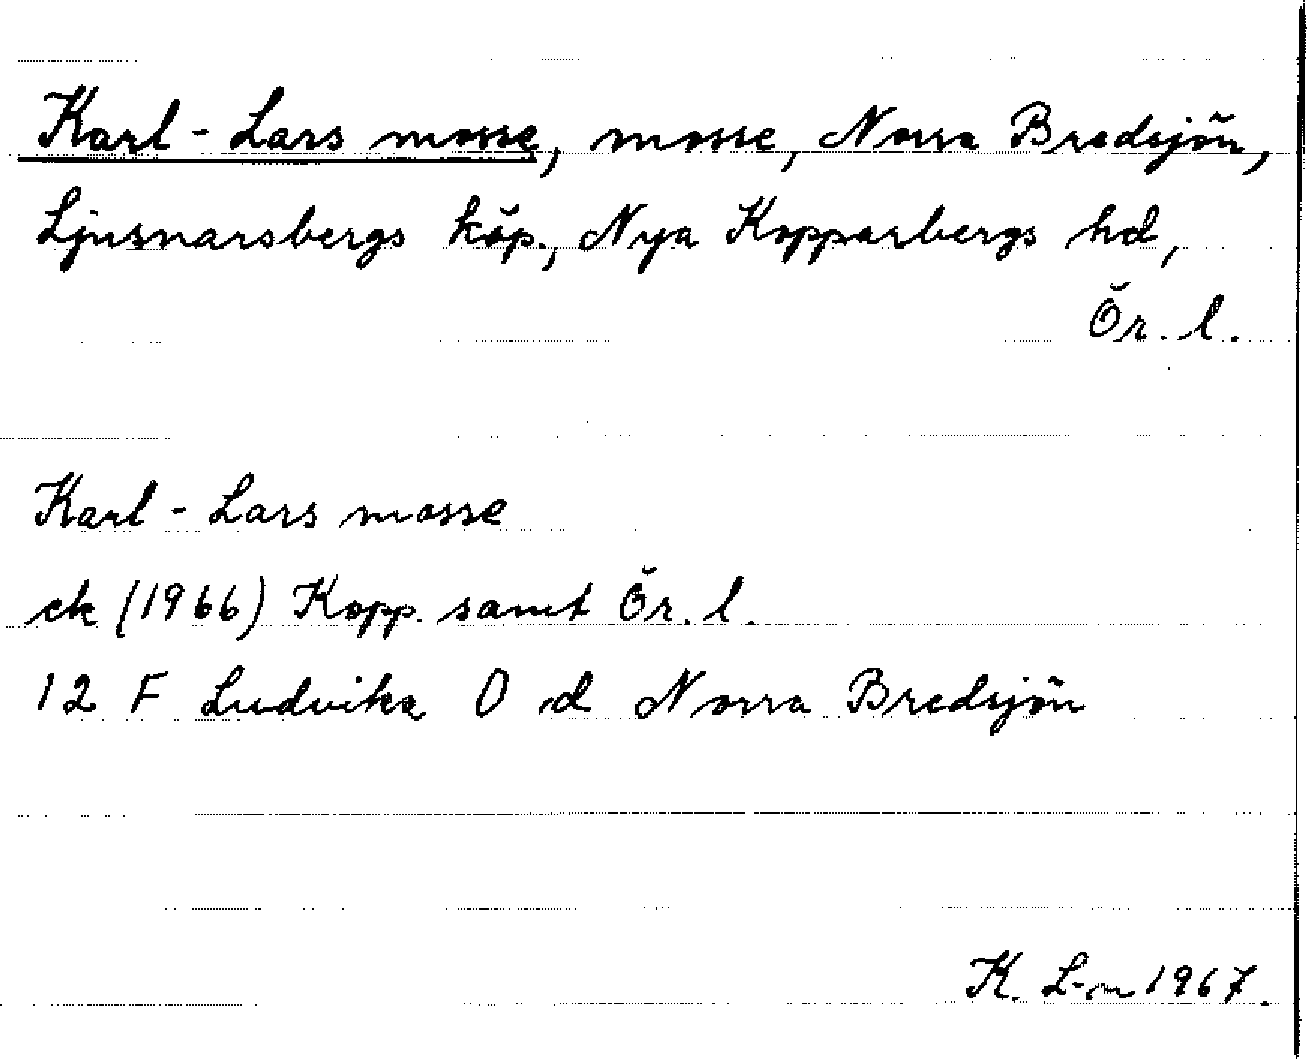 Karl-Lars mosse, mosse, Norra Bredsjön,
Ljusnarsbergs köp., Nya Kopparbergs hd,
Ör. l.
Karl-Lars mosse
ek (1966) Kopp. samt Ör. l.
12 F Ludvika 0 d Norra Bredsjön
K. L-n 1967.